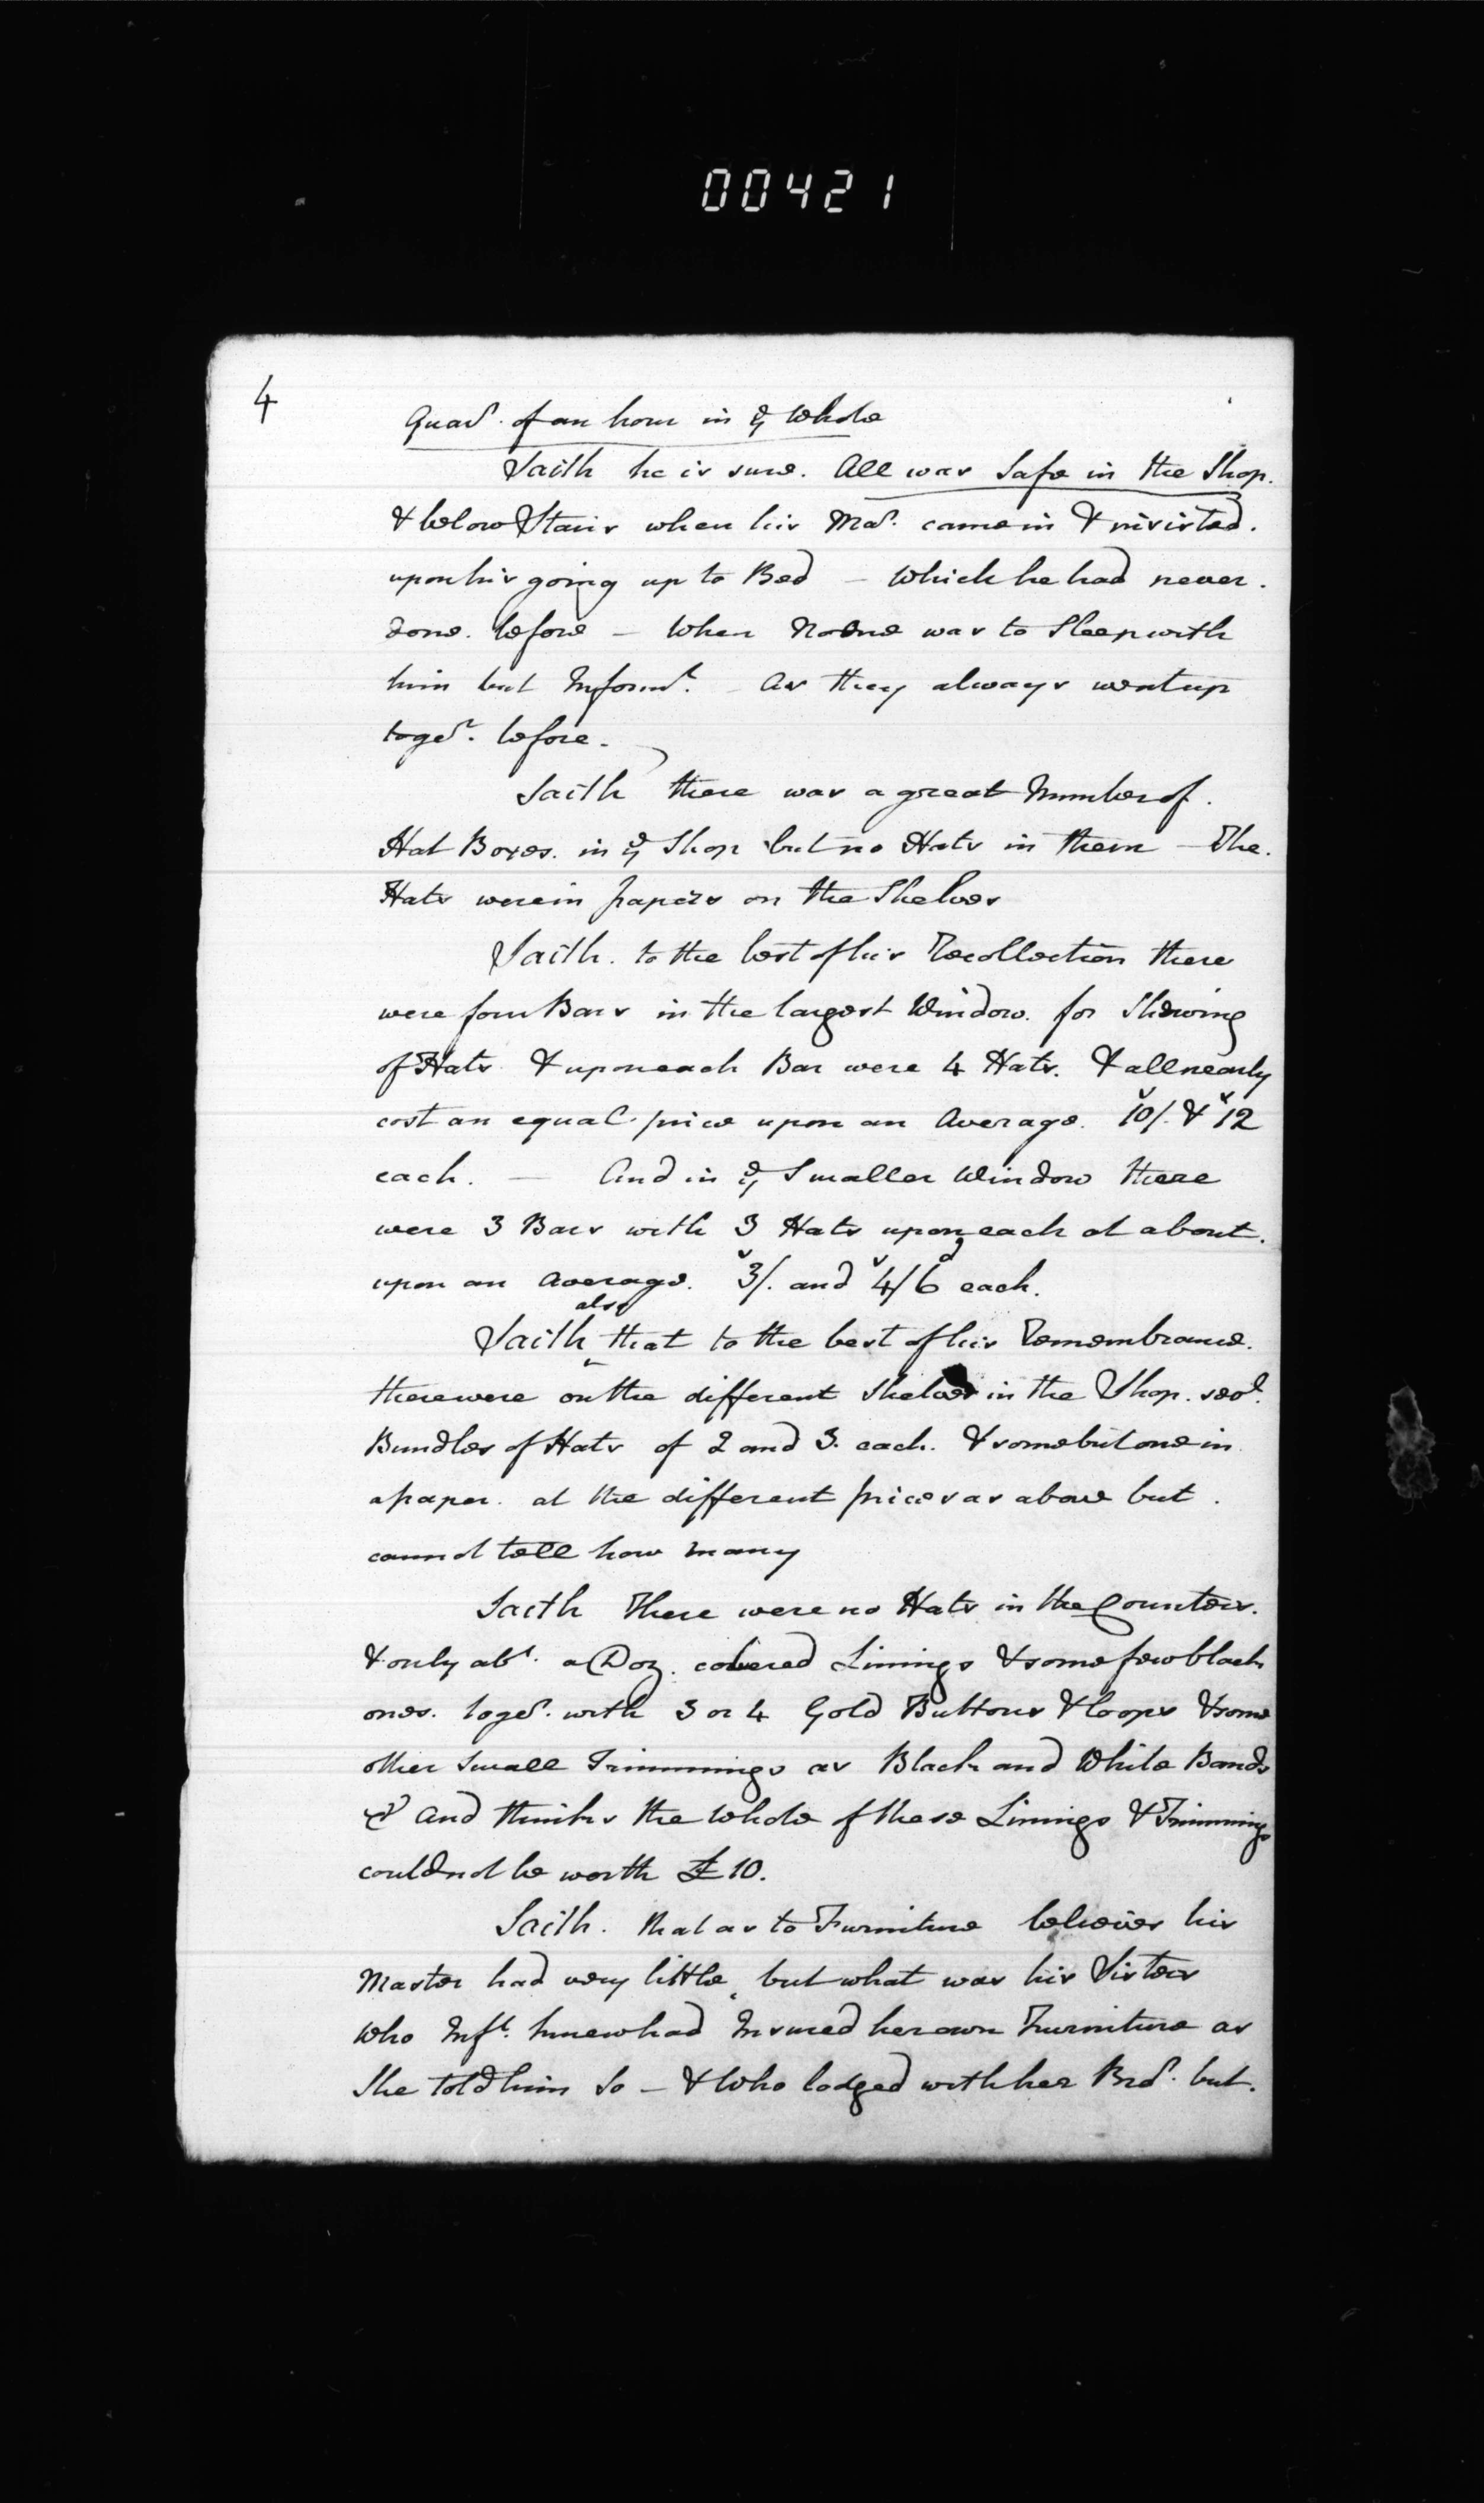 00421
4
Quar. of an hour in ye Whole
Saith he is sure. All was Safe in the Shop.
& below Stairs when his Mar. came in & insisted.
upon his going up to Bed – Which he had never.
done. before – When No One was to Sleep with
him but Informt. – As they always went up
toger. before.
Saith there was a great Number of.
Hat Boxes. in ye Shop but no Hats in them – The.
Hats were in papers on the Shelves
Saith. to the best of his Recollection there
were four Bars in the largest Window. for Shewing
of Hats & upon each Bar were 4 Hats. & all nearly
cost an equal price upon an Average. 10/. & 12
each. – And in ye Smaller Window there
were 3 Bars with 3 Hats upon each at about.
upon an Average. 3/. and 4/6d each.
Saith also that to the best of his Remembrance.
there were on the different Shelves in the Shop. sevl.
Bundles of Hats of 2 and 3. each. & some but one in
a paper. at the different prices as above but.
cannot tell how many
Saith There were no Hats in the Counters.
& only abt. a Doz. covered Linings & some few black
ones. toger. with 3 or 4 Gold Buttons & loops & some
other Small Trimmings as Black and White Bands
&c And thinks the Whole of these Linings & Trimmings
could not be worth £10.
Saith. that as to Furniture believes his
Master had very little, but what was his Sisters
Who Inft. knew had Insured her own Furniture as
She told him So – & Who lodged with her Bror. but.